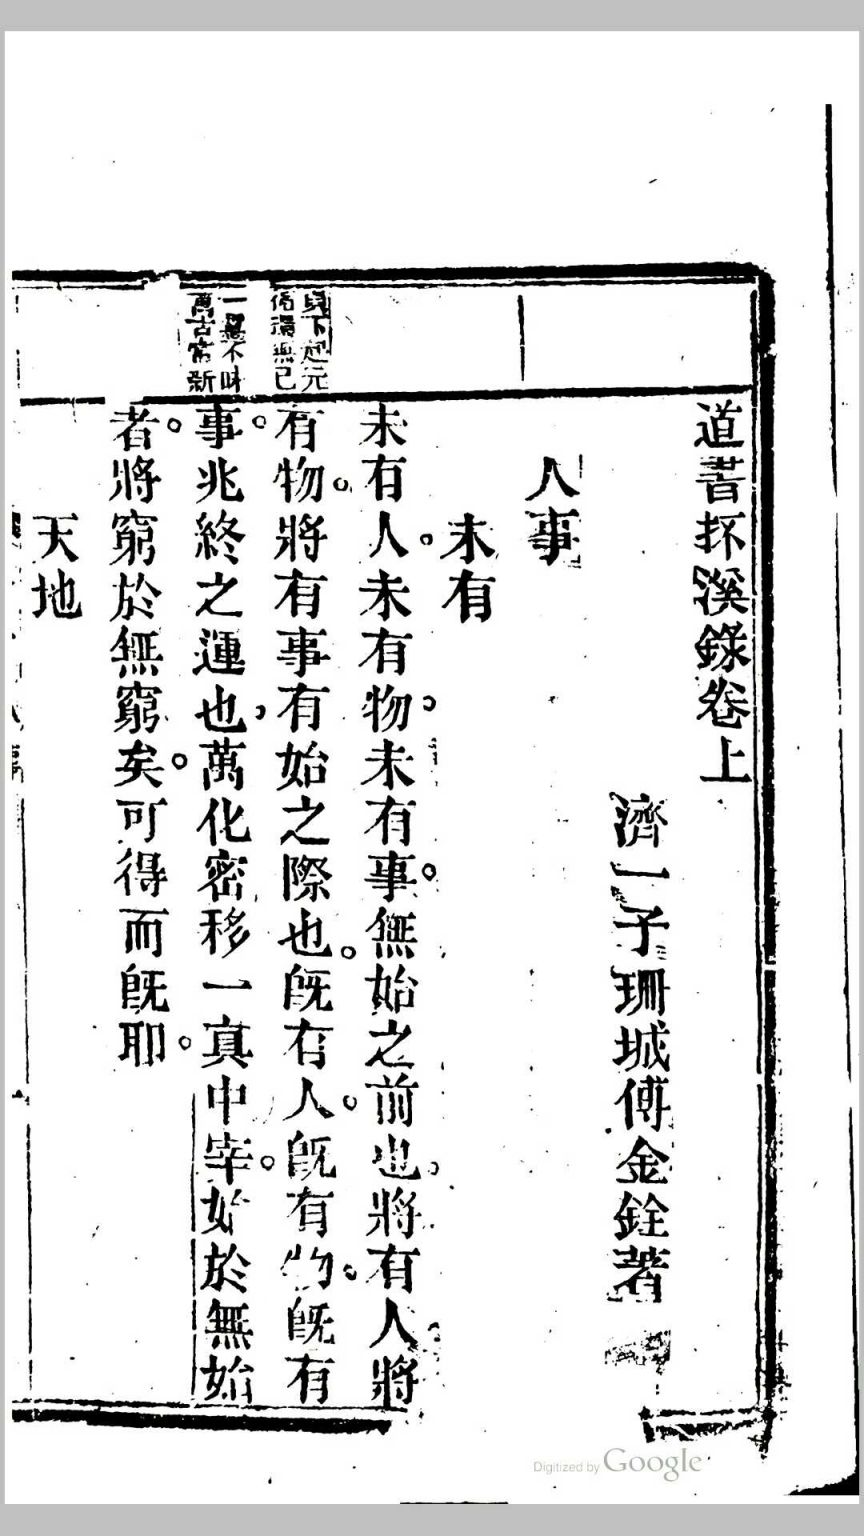 道書抔溪錄卷上
濟一子珊城傅金銓著
人事
未有
未有人。未有物。未有事。無始之前也。將有人將
有物。將有事有始之際也。旣有人。旣有物。旣有
事。兆終之運也。萬化密移一真中宰。始於無始
者。將窮於無窮矣。可得而旣耶。
天地
貞下起元
循環無已
一靈不昧
萬古常新
Digitized by Google